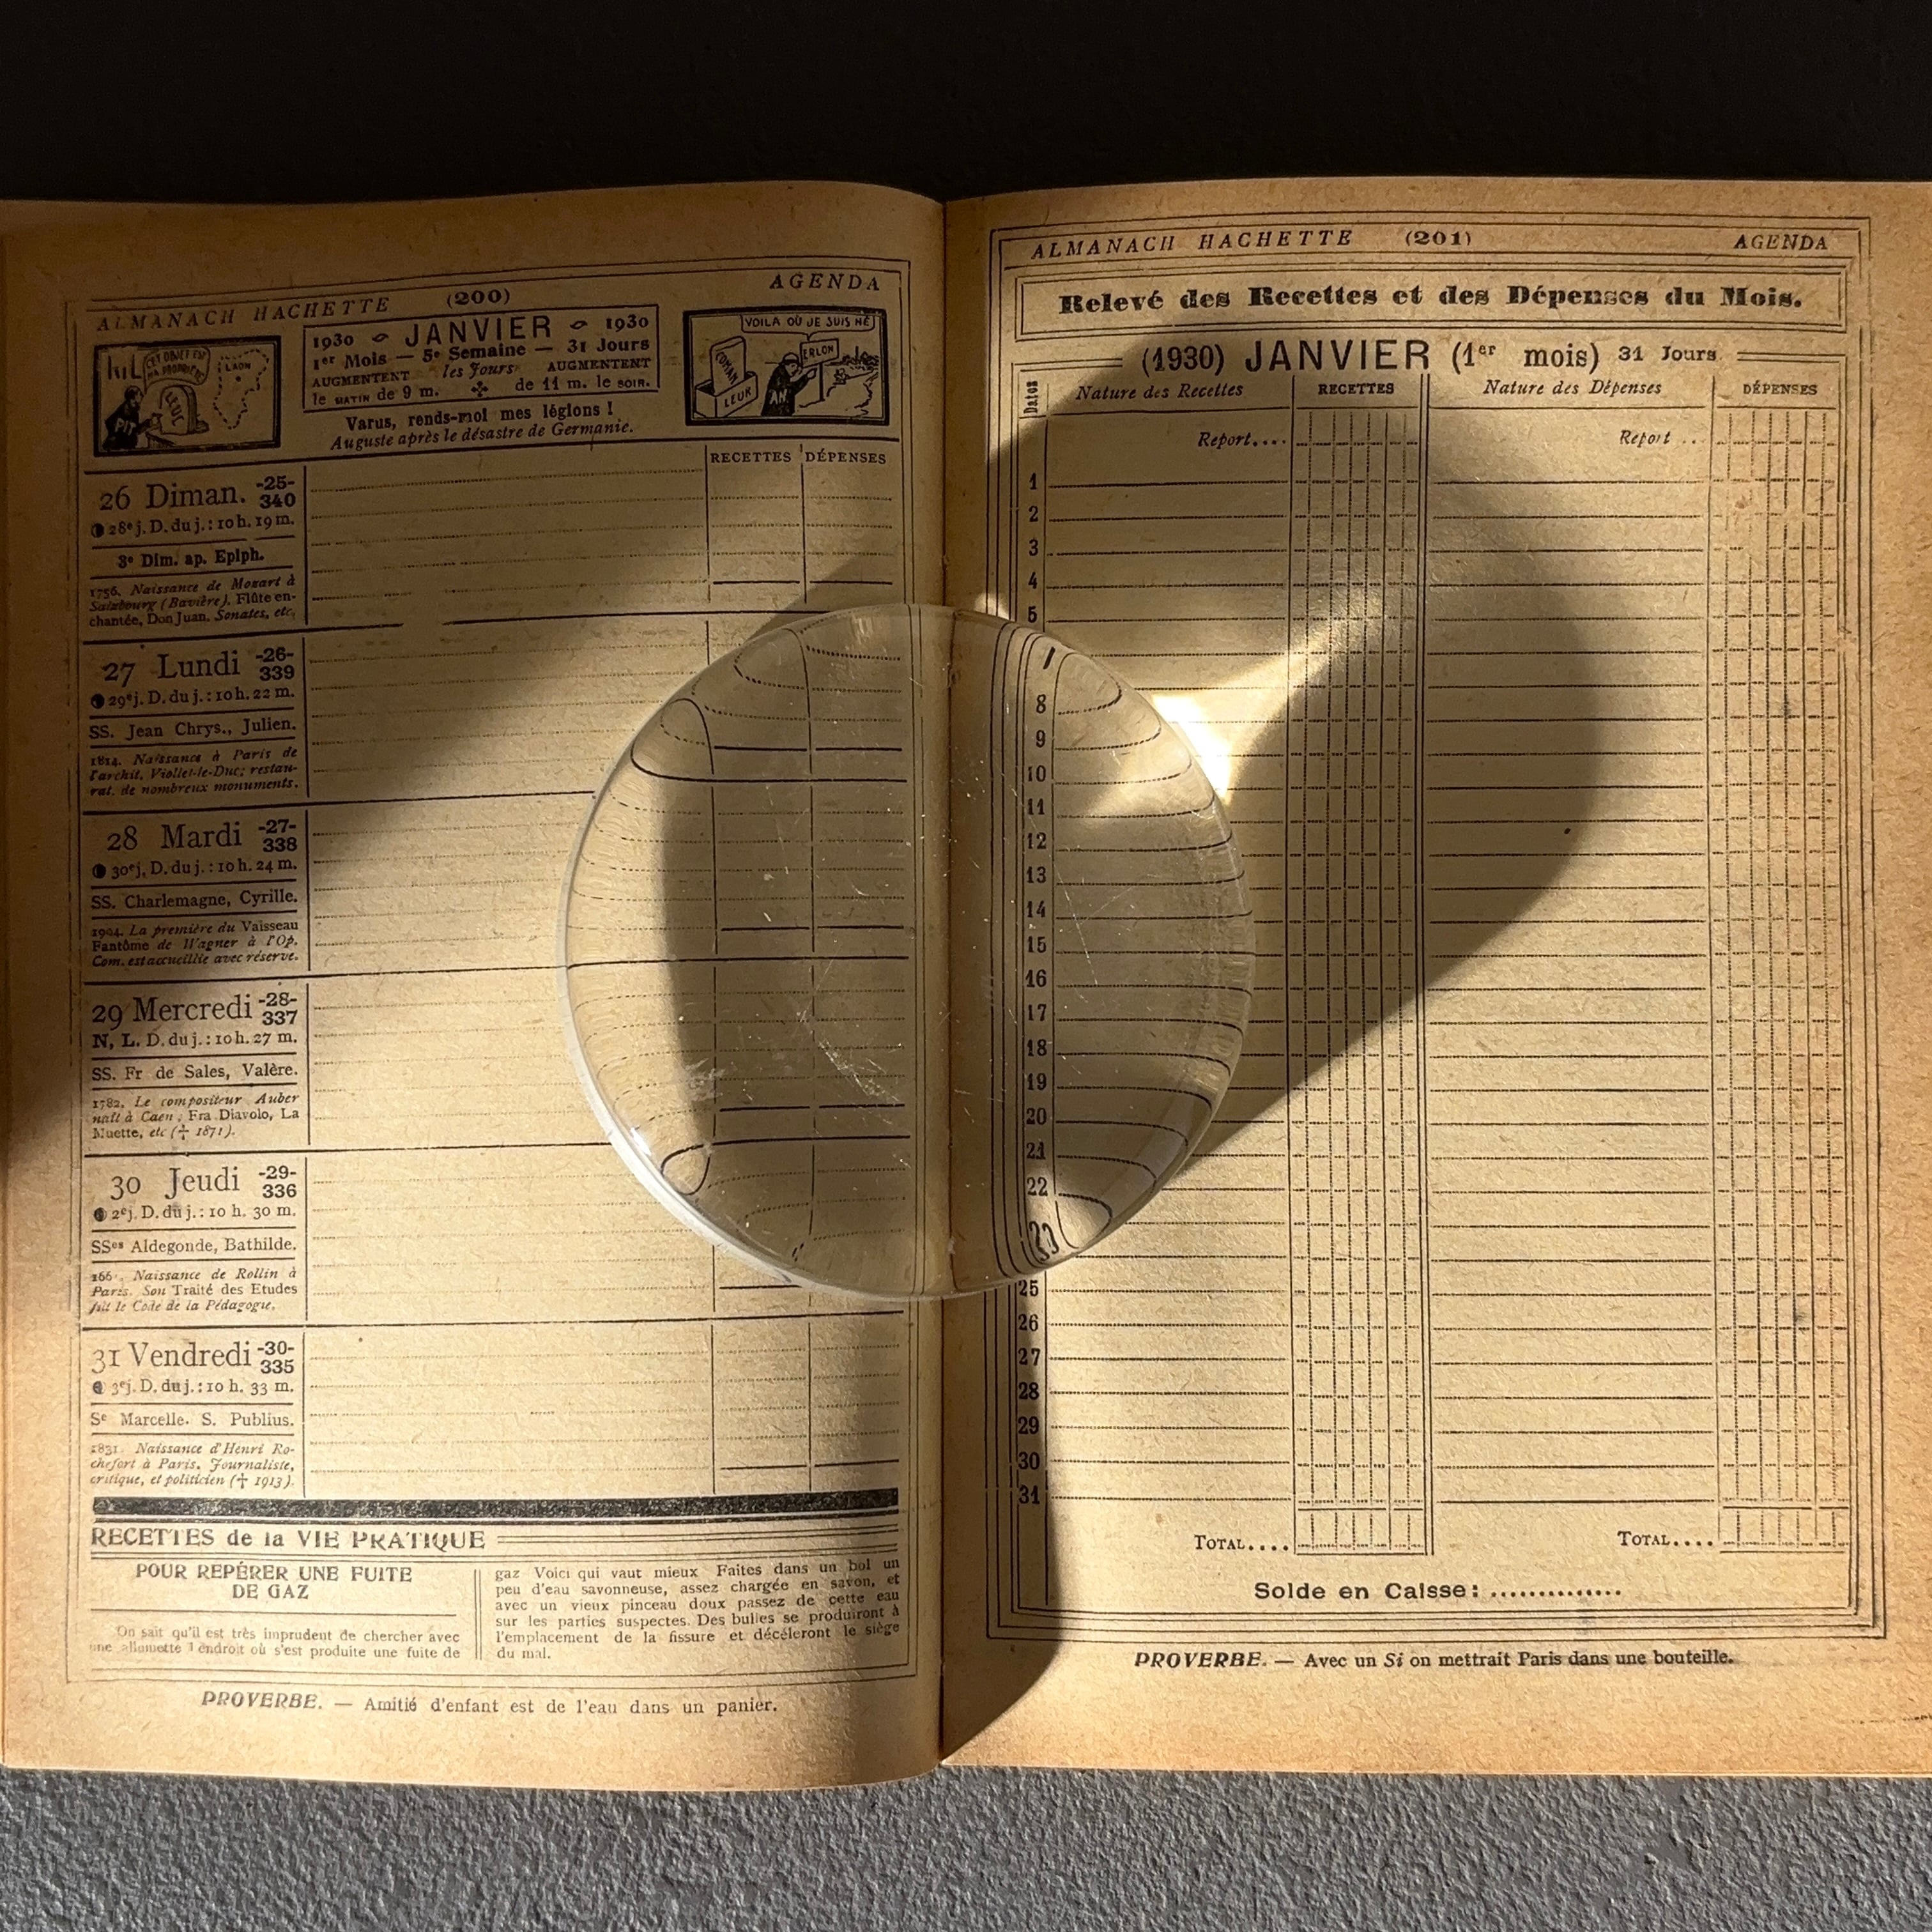 ALMANACH HACHETTE (200) AGENDA
CET OBJET EST MA PROPRIÉTÉ
LAON
LEUC
PIT
1930 JANVIER 1930
1er Mois — 5e Semaine — 31 Jours
AUGMENTENT les Jours AUGMENTENT
le MATIN de 9 m. de 11 m. le SOIR.
Varus, rends-moi mes légions !
Auguste après le désastre de Germanie.
VOILÀ OÙ JE SUIS NÉ
ERLON
LEUK
AN
RECETTES DÉPENSES
26 Diman. -25-
340
28e j. D. du j. : 10 h. 19 m.
3e Dim. ap. Epiph.
1756. Naissance de Mozart à
Salzbourg (Bavière). Flûte en-
chantée, Don Juan. Sonates, etc.
27 Lundi -26-
339
29e j. D. du j. : 10 h. 22 m.
SS. Jean Chrys., Julien.
1814. Naissance à Paris de
l'archit. Viollet-le-Duc; restau-
rat. de nombreux monuments.
28 Mardi -27-
338
30e j. D. du j. : 10 h. 24 m.
SS. Charlemagne, Cyrille.
1904. La première du Vaisseau
Fantôme de Wagner à l'Op.
Com. est accueillie avec réserve.
29 Mercredi -28-
337
N. L. D. du j. : 10 h. 27 m.
SS. Fr de Sales, Valère.
1782. Le compositeur Auber
naît à Caen ; Fra Diavolo, La
Muette, etc († 1871).
30 Jeudi -29-
336
2e j. D. du j. : 10 h. 30 m.
SSes Aldegonde, Bathilde.
166 . Naissance de Rollin à
Paris. Son Traité des Etudes
fut le Code de la Pédagogie.
31 Vendredi -30-
335
3e j. D. du j. : 10 h. 33 m.
Se Marcelle. S. Publius.
1831. Naissance d'Henri Ro-
chefort à Paris. Journaliste,
critique, et politicien († 1913).
RECETTES de la VIE PRATIQUE
POUR REPÉRER UNE FUITE
DE GAZ
On sait qu'il est très imprudent de chercher avec
une allumette l'endroit où s'est produite une fuite de
gaz Voici qui vaut mieux Faites dans un bol un
peu d'eau savonneuse, assez chargée en savon, et
avec un vieux pinceau doux passez de cette eau
sur les parties suspectes. Des bulles se produiront à
l'emplacement de la fissure et décéleront le siège
du mal.
PROVERBE. — Amitié d'enfant est de l'eau dans un panier.
ALMANACH HACHETTE (201) AGENDA
Relevé des Recettes et des Dépenses du Mois.
(1930) JANVIER (1er mois) 31 Jours
Dates Nature des Recettes RECETTES Nature des Dépenses DÉPENSES
Report.... Report ..
1
2
3
4
5
8
9
10
11
12
13
14
15
16
17
18
19
20
21
22
23
25
26
27
28
29
30
31
TOTAL.... TOTAL....
Solde en Caisse : ..............
PROVERBE. — Avec un Si on mettrait Paris dans une bouteille.